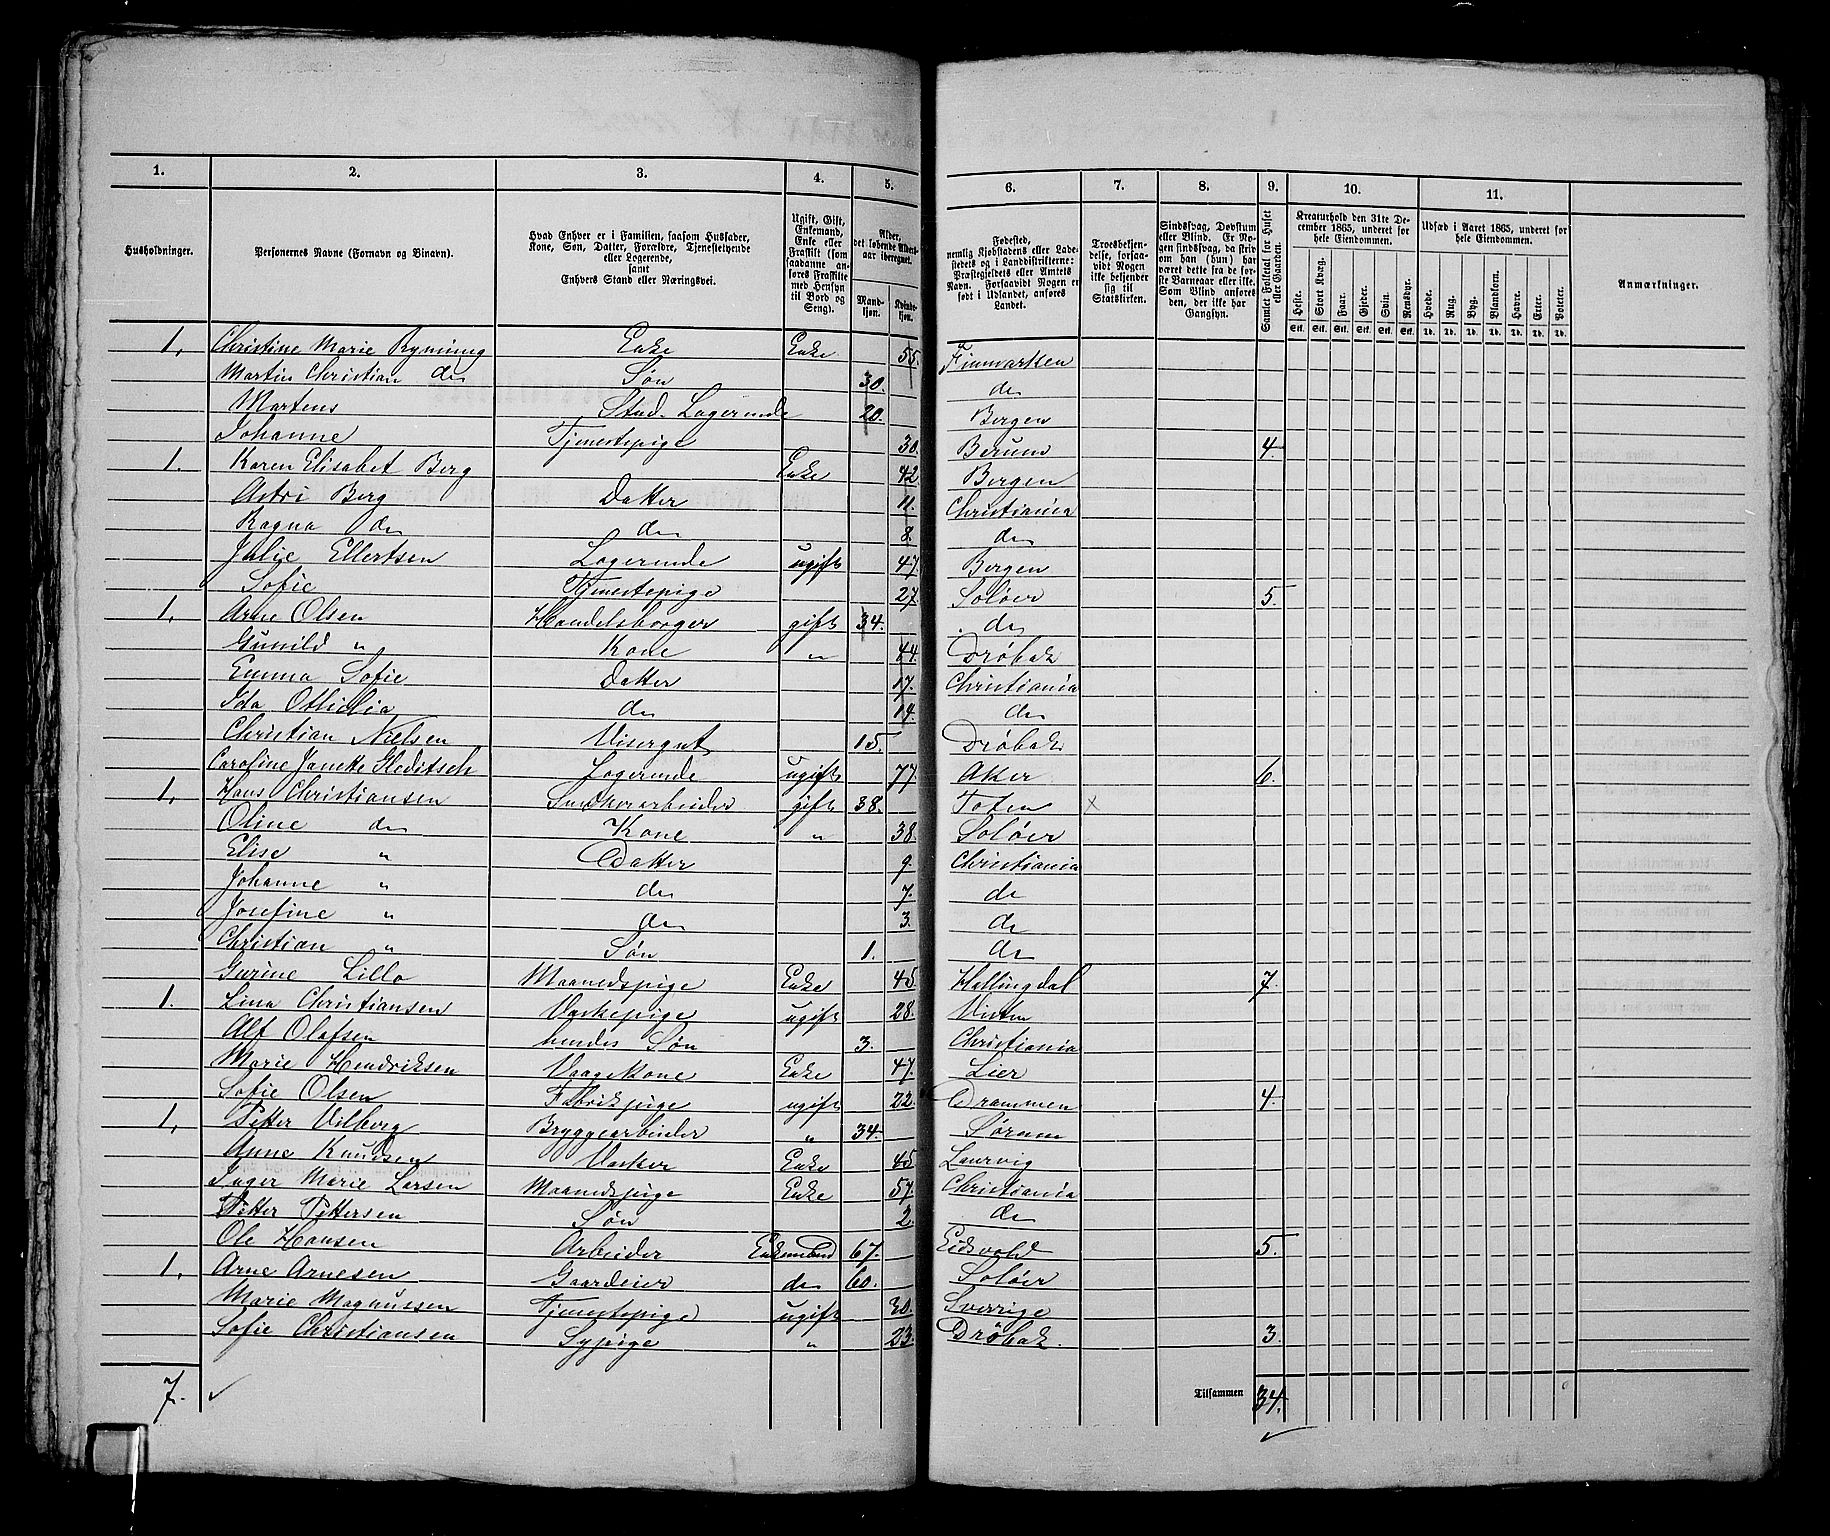 1. 2. 3. 4. 5. 6. 7. 8. 9. 10. 11.
Husholdninger.
Personernes Navne (Fornavn og Binavn).
Hvad Enhver er i Familien, saasom Husfader, Kone, Søn, Datter, Forældre, Tjenestetyende eller Logerende, samt Enhvers Stand eller Næringsvei.
Ugift, Gift, Enkemand, Enke eller Fraskilt (som saadanne anføres Fraskilte med Hensyn til Bord og Seng).
Alder, det løbende Aldersaar iberegnet.
Mandkjøn. Kvindekjøn.
Fødested, nemlig Kjøbstadens eller Ladestedets og i Landdistrikterne: Præstegjeldets eller Amtets Navn. Forsaavidt Nogen er født i Udlandet, anføres Landet.
Troesbekjendelse, forsaavidt Nogen ikke bekjender sig til Statskirken.
Sindssvag, Døvstum eller Blind. Er Nogen sindssvag, da skriv om han (hun) har været dette fra de første Barneaar eller ikke. Som Blind anføres den, der ikke har Gangsyn.
Samlet Folketal for Huset eller Gaarden.
Kreaturhold den 31te December 1865, underet for hele Eiendommen.
Heste. Stort Kvæg. Faar. Gjeder. Svin. Rensdyr.
Stk. Stk. Stk. Stk. Stk. Stk.
Udsæd i Aaret 1865, underet for hele Eiendommen.
Hvede. Rug. Byg. Blandkorn. Havre. Erter. Poteter.
Td. Td. Td. Td. Td. Td. Td.
Anmærkninger.
1. Christine Marie Ryming Enke Enke 55. Finmarken
Martin Christian do Søn 30. do
Martens Stud. Logerende 20. Bergen
Johanne Tjenestepige 30. Berum 4.
1. Karen Elisabet Berg Enke 42 Bergen
Astri Berg Datter 11. Christiania
Ragna do do 8. do
Julie Ellertsen Logerende ugift 47. Bergen
Sofie Tjenestepige 27. Soløer 5.
1. Arne Olsen Handelsborger gift 34. do
Gunild " Kone " 44. Drøbak
Emma Sofie Datter 17. Christiania
Ida Ottilia do 14. do
Christian Nielsen Visergut 15. Drøbak
Caroline Janette Gleditsch Logerende ugift 77. Aker 6.
1. Hans Christiansen Snedkerarbeider gift 38. Toten x
Oline do Kone " 38. Soløer
Elise " Datter 9. Christiania
Johanne " do 7. do
Josefine " do 3. do
Christian " Søn 1. do
Gurine Lillo Maanedspige Enke 45. Hallingdal 7.
1. Lina Christiansen Vaskepige ugift 28. Vister
Alf Olafsen hendes Søn 3. Christiania
Marie Hendriksen Vaagekone Enke 47. Lier
Sofie Olsen Fabrikpige ugift 22. Drammen 4.
1. Petter Vilberg Bryggearbeider " 34. Sørum
Anne Knudsen Vasker Enke 45. Laurvig
Inger Marie Larsen Maanedspige Enke 57. Christiania
Petter Pettersen Søn 2. do
Ole Hansen Arbeider Enkemand 67. Eidsvold 5.
1. Arne Arnesen Gaardeier do 60. Soløer
Marie Magnussen Tjenestepige ugift 30. Sverrige
Sofie Christiansen Sypige " 23. Drøbak. 3.
7. ✓ Tilsammen 34. ✓